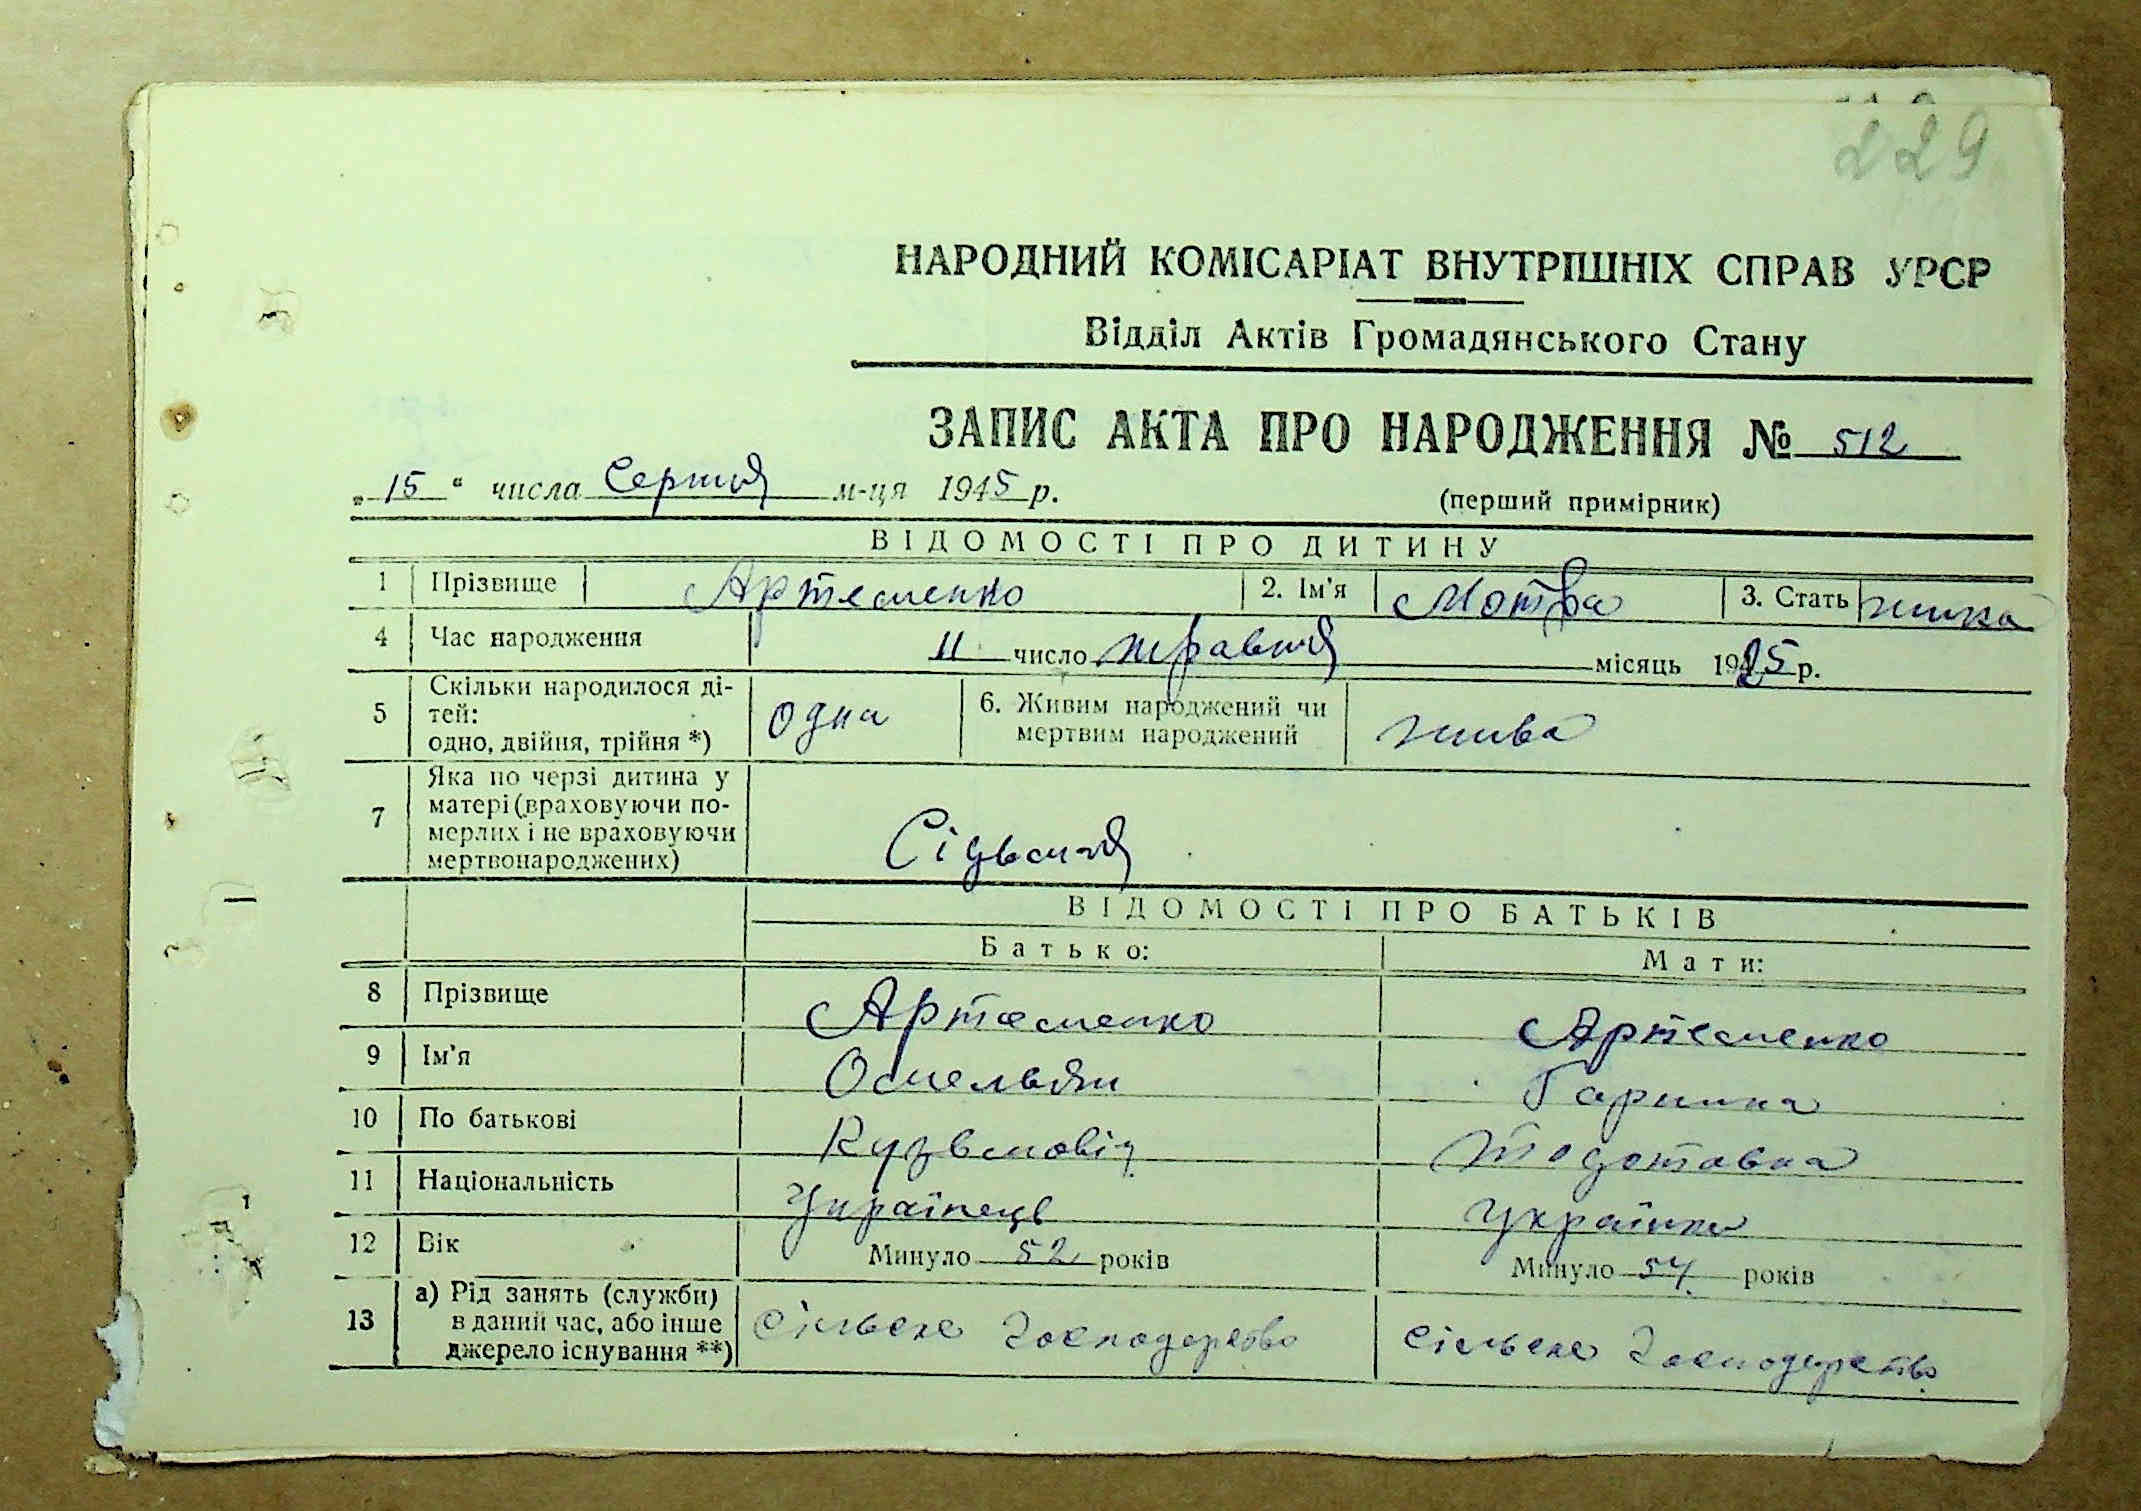 229
НАРОДНИЙ КОМІСАРІАТ ВНУТРІШНІХ СПРАВ УРСР
Відділ Актів Громадянського Стану
ЗАПИС АКТА ПРО НАРОДЖЕННЯ № 512
„15“ числа Серпня м-ця 1945 р. (перший примірник)
ВІДОМОСТІ ПРО ДИТИНУ
1 Прізвище Артеменко 2. Ім'я Мотра 3. Стать жінка
4 Час народження 11 число травня місяць 1925 р.
5 Скільки народилося ді-
тей:
одно, двійня, трійня *) одна 6. Живим народжений чи
мертвим народжений жива
7 Яка по черзі дитина у
матері (враховуючи по-
мерлих і не враховуючи
мертвонароджених) Сідьмая
ВІДОМОСТІ ПРО БАТЬКІВ
Батько: Мати:
8 Прізвище Артеменко Артеменко
9 Ім'я Омельян Гарпина
10 По батькові Кузьмовіч Тодотовна
11 Національність Українець Українка
12 Вік Минуло 52 років Минуло 54 років
13 а) Рід занять (служби)
в даний час, або інше
джерело існування **) сільске господарство сільске господарство